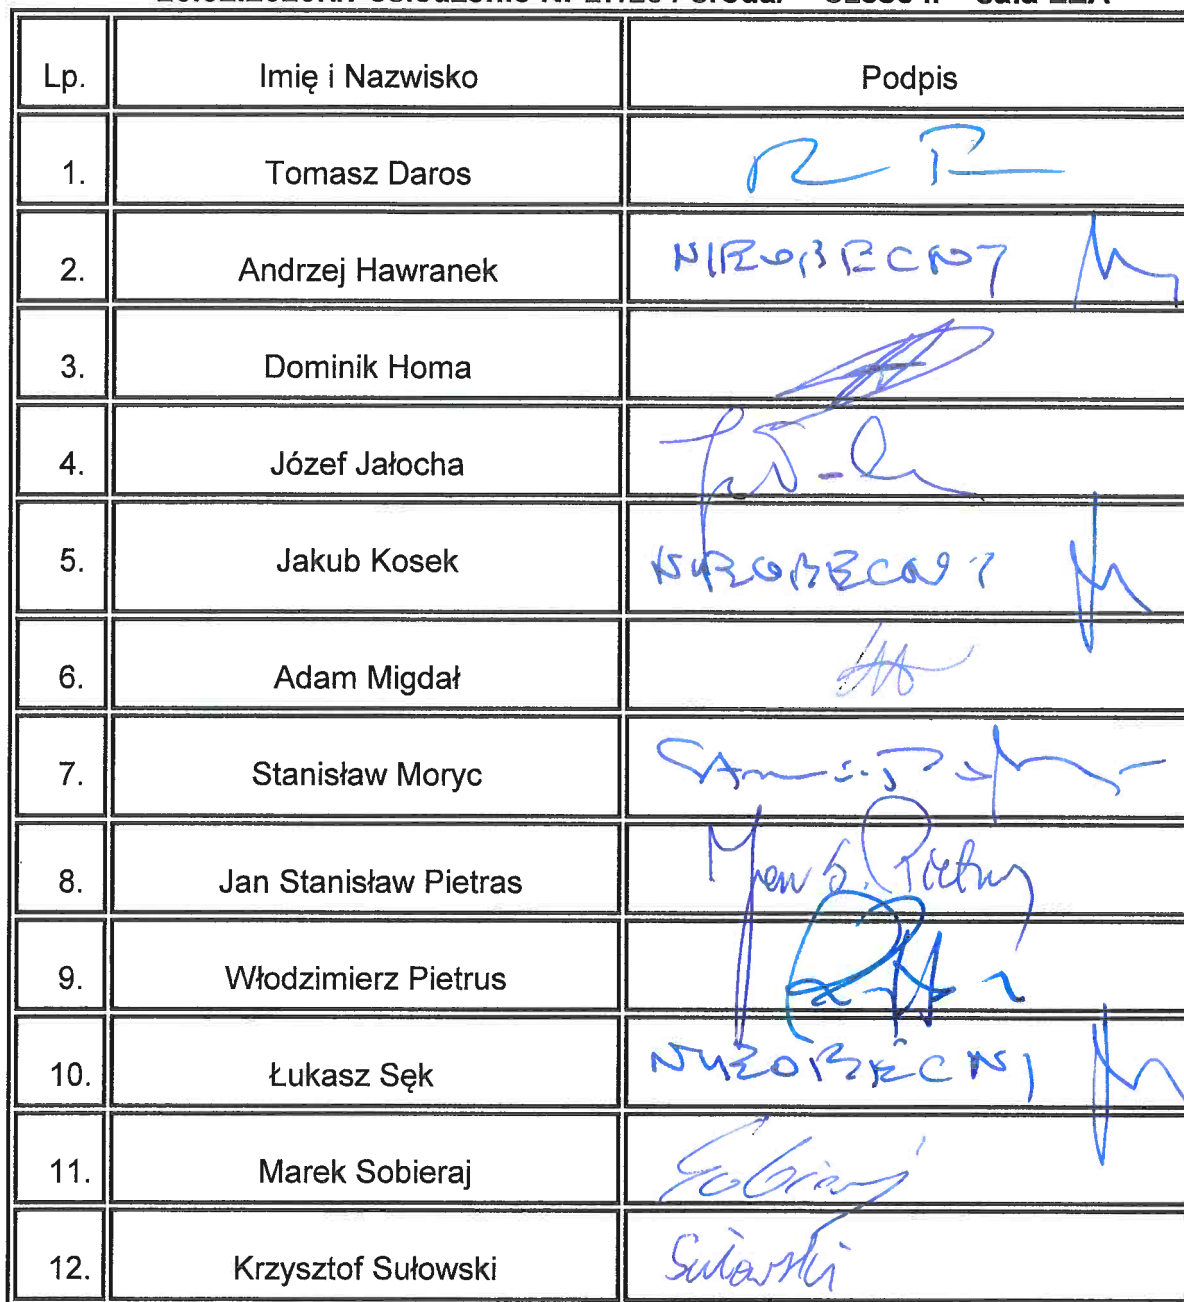 Lp. Imię i Nazwisko Podpis
1. Tomasz Daros
2. Andrzej Hawranek NIEOBECNY
3. Dominik Homa
4. Józef Jałocha
5. Jakub Kosek NIEOBECNY
6. Adam Migdał
7. Stanisław Moryc
8. Jan Stanisław Pietras Jan S. Pietras
9. Włodzimierz Pietrus
10. Łukasz Sęk NIEOBECNY
11. Marek Sobieraj Sobieraj
12. Krzysztof Sułowski Sułowski